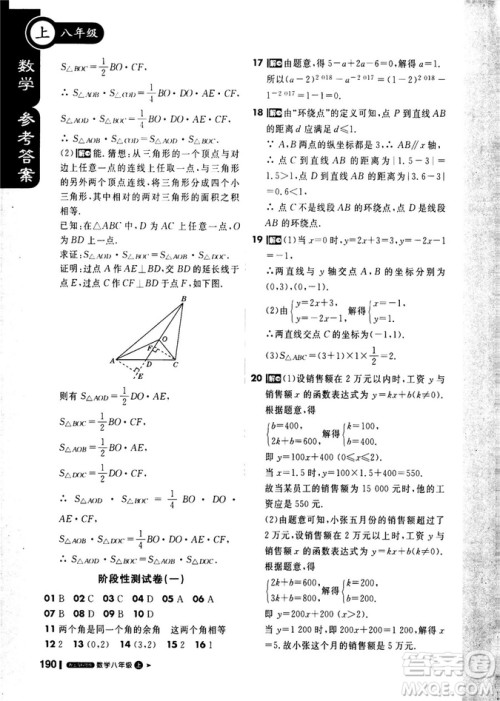 上 八年级
数学 参考答案
S△BOC=1/2 BO·CF,
∴ S△AOD·S△BOC=1/4 BO·DO·AE·CF,
∴ S△AOB·S△COD=S△AOD·S△BOC.
(2)能.猜想:从三角形的一个顶点与对
边上任意一点的连线上任取一点,与三角形
的另外两个顶点连线,将三角形分成四
个小三角形,其中相对的两对三角形的面积之积
相等.
已知:在△ABC中,D为AC上一点,O为
BD上任意一点.
求证:S△AOB·S△COD=S△AOD·S△BOC.
证明:过点A作AE⊥BD,交BD的延长线于
点E,过点C作CF⊥BD于点F.
B
O
F
A D C
E
则有 S△AOD=1/2 DO·AE,
S△BOC=1/2 BO·CF,
S△AOB=1/2 BO·AE,
S△COD=1/2 DO·CF,
∴ S△AOD·S△BOC=1/4 BO·DO·AE·CF,
S△AOB·S△DOC=1/4 BO·DO·AE·CF,
∴ S△AOB·S△COD=S△AOD·S△BOC.
阶段性测试卷(一)
01 B 02 C 03 D 04 D 05 A 06 B
07 B 08 B 09 B 10 C
11 两个角是同一个角的余角 这两个角相等
12 2 13 (0,2) 14 (3,2) 15 2 16 1
190 数学八年级 上
17 解 由题意,得5-a+2a-6=0,解得a=1,
所以(a-2)2 018-(a-2)-2 017
18 解 由“环绕点”的定义可知,点P到直线AB
的距离d应满足d≤1.
∵A,B两点的纵坐标都是3,∴AB∥x轴,
∴点C到直线AB的距离为|1.5-3|=
1.5>1,点D到直线AB的距离为|3.6-3|=
0.6<1,
∴点C不是直线AB的环绕点,点D是直线
AB的环绕点.
19 解 (1)当x=0时,y=2x+3=3,y=-2x-1=-1,
∴两直线与y轴交点A,B的坐标分别为
(0,3),(0,-1).
(2)由{y=2x+3, y=-2x-1, 解得{x=-1, y=1,
∴两直线交点C的坐标为(-1,1).
∴S△ABC=(3+1)×1×1/2=2.
20 解 (1)设销售额在2万元以内时,工资y与
销售额x的函数表达式为y=kx+b(k≠0).
根据题意,得
{b=400, 2k+b=800, 解得{k=200, b=400,
即y=200x+400(0≤x≤2).
当x=1.5时,y=1.5×200+400=700.
故当某员工的销售额为15 000元时,他的工
资应是700元.
(2)由题意可知,小张五月份的销售额超过
2万元.
设销售额在2万元以上时,工资y与销售额x
的函数表达式为y=kx+b(k≠0).
根据题意,得
{2k+b=800, 3k+b=1 200, 解得{k=400, b=0,
即y=400x(x>2).